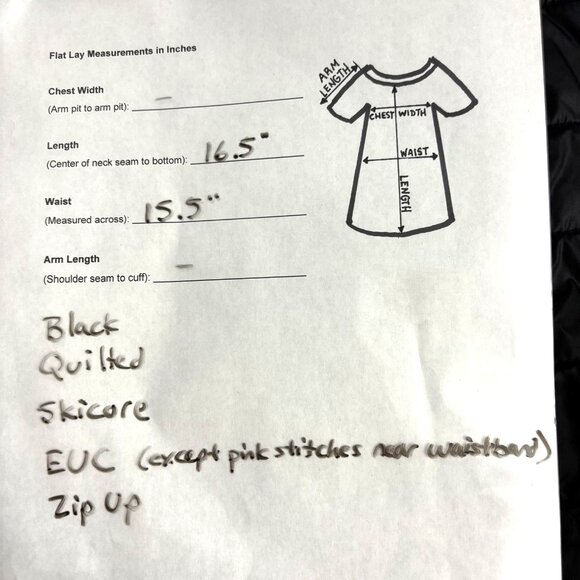 Flat Lay Measurements in Inches
Chest Width
(Arm pit to arm pit): –
Length
(Center of neck seam to bottom): 16.5"
Waist
(Measured across): 15.5"
Arm Length
(Shoulder seam to cuff): –
ARM
LENGTH
CHEST WIDTH
WAIST
LENGTH
Black
Quilted
Skicore
EUC (except pink stitches near waistband)
Zip Up